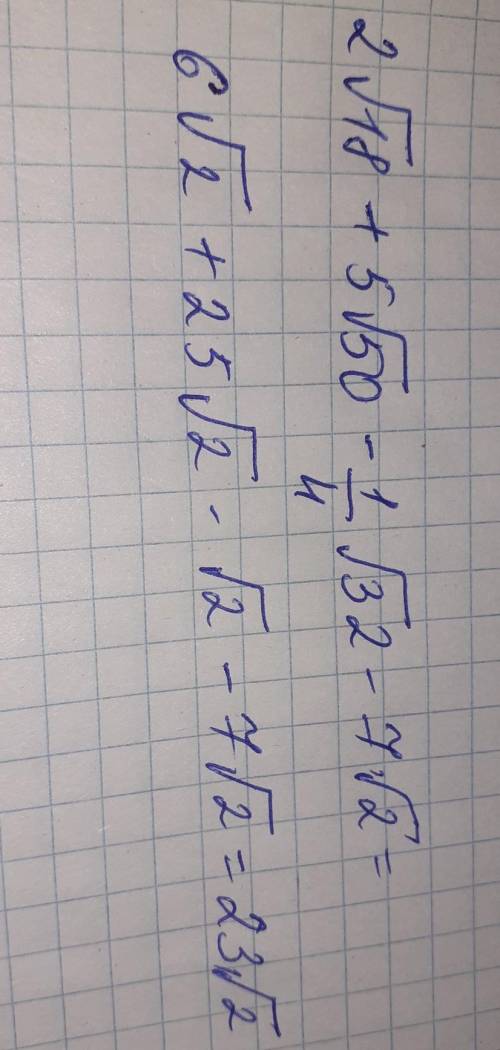 2√18 + 5√50 - 1/4 √32 - 7√2 =
6√2 + 25√2 - √2 - 7√2 = 23√2